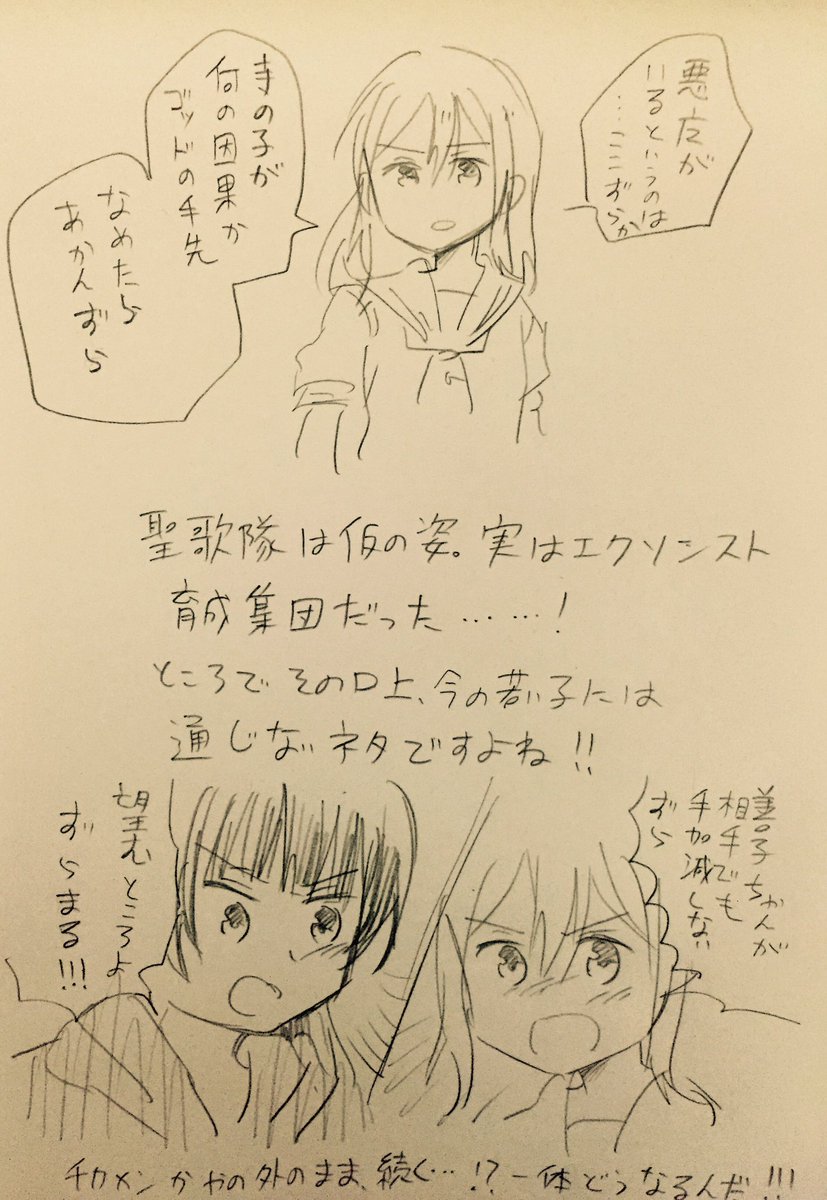 悪店が
いるというのは
…ここずらか
寺の子が
何の因果か
ゴッドの手先
なめたら
あかんずら
聖歌隊は仮の姿。実はエクソシスト
育成集団だった……!
ところでその口上、今の若い子には
通じないネタですよね!!
善子ちゃんが
相手でも
手加減しない
ずら
望むところよ
ずらまる!!!
チカメンかやの外のまま、続く…!?一体どうなるんだ!!!